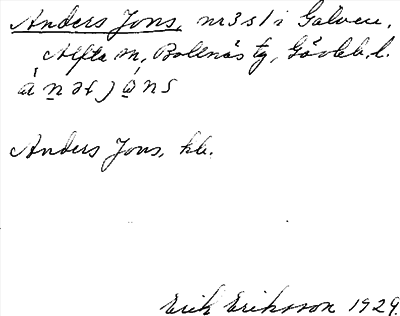 Anders Jons, nr 3 s1 i Galven,
Alfta sn, Bollnäs tg, Gävleb. l.
Anders Jons, kk.
Erik Eriksson 1929.